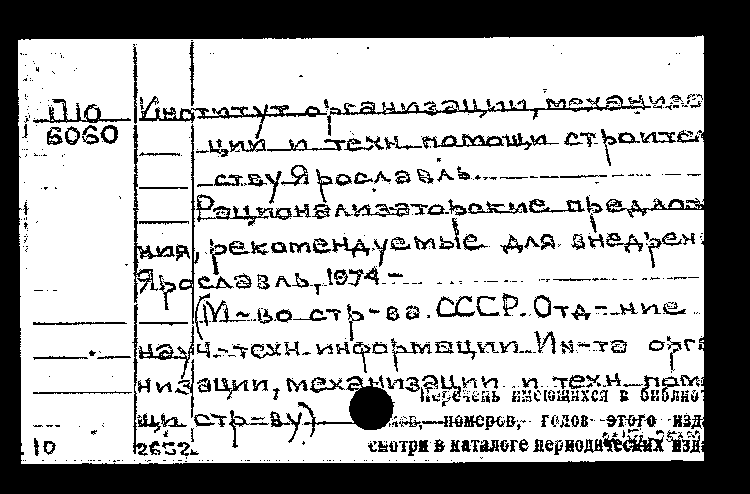 П10 Институт организации, механиза
6060 ции и техн. помощи строитель
ству Ярославль.
Рационализаторские предложе
ния, рекомендуемые для внедрен
Ярославль, 1974 -
(М-во стр-ва. СССР. Отд-ние
науч.-техн. информации Ин-та орга
низации, механизации и техн. помо
Перечень имеющихся в библиот
щи стр-ву)
номеров, годов этого изд
10 2652
смотри в каталоге периодических изда